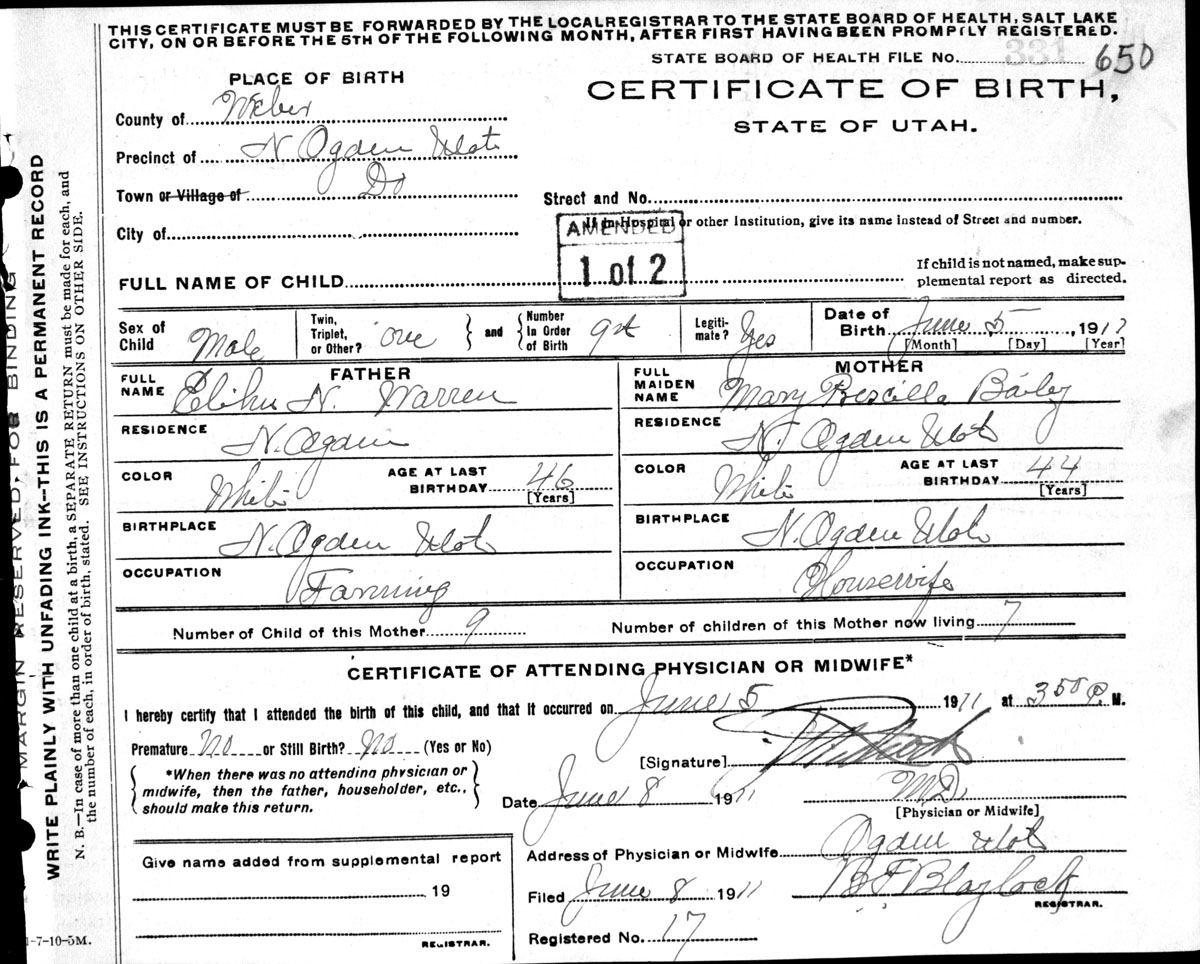 THIS CERTIFICATE MUST BE FORWARDED BY THE LOCAL REGISTRAR TO THE STATE BOARD OF HEALTH, SALT LAKE
CITY, ON OR BEFORE THE 5TH OF THE FOLLOWING MONTH, AFTER FIRST HAVING BEEN PROMPTLY REGISTERED.
STATE BOARD OF HEALTH FILE NO. 331 650
PLACE OF BIRTH
CERTIFICATE OF BIRTH,
STATE OF UTAH.
County of Weber
Precinct of N. Ogden Utah
Town or Village of Do
Street and No.
If in Hospital or other Institution, give its name instead of Street and number.
City of
AMENDED
1 of 2
FULL NAME OF CHILD
If child is not named, make sup-
plemental report as directed.
Sex of Child Male
Twin, Triplet, or Other? one
and Number In Order of Birth 9st
Legiti- mate? Yes
Date of Birth June 5, 1911
[Month] [Day] [Year]
FATHER
FULL NAME Elihu N. Warren
RESIDENCE N. Ogden
COLOR White
AGE AT LAST BIRTHDAY 46 [Years]
BIRTHPLACE N. Ogden Utah
OCCUPATION Farming
MOTHER
FULL MAIDEN NAME Mary Prescilla Bailey
RESIDENCE N. Ogden Utah
COLOR White
AGE AT LAST BIRTHDAY 44 [Years]
BIRTHPLACE N. Ogden Utah
OCCUPATION Housewife
Number of Child of this Mother 9
Number of children of this Mother now living 7
CERTIFICATE OF ATTENDING PHYSICIAN OR MIDWIFE*
I hereby certify that I attended the birth of this child, and that it occurred on June 5 1911 at 350 P. M.
Premature No or Still Birth? No (Yes or No)
*When there was no attending physician or
midwife, then the father, householder, etc.,
should make this return.
[Signature]
Date June 8 1911 M.D.
[Physician or Midwife]
Address of Physician or Midwife Ogden Utah
Filed June 8 1911 B F Blaylock
REGISTRAR.
Registered No. 17
Give name added from supplemental report
19
REGISTRAR.
1-7-10-5M.
MARGIN RESERVED FOR BINDING
WRITE PLAINLY WITH UNFADING INK--THIS IS A PERMANENT RECORD
N. B.—In case of more than one child at a birth, a SEPARATE RETURN must be made for each, and
the number of each, in order of birth, stated. SEE INSTRUCTIONS ON OTHER SIDE.